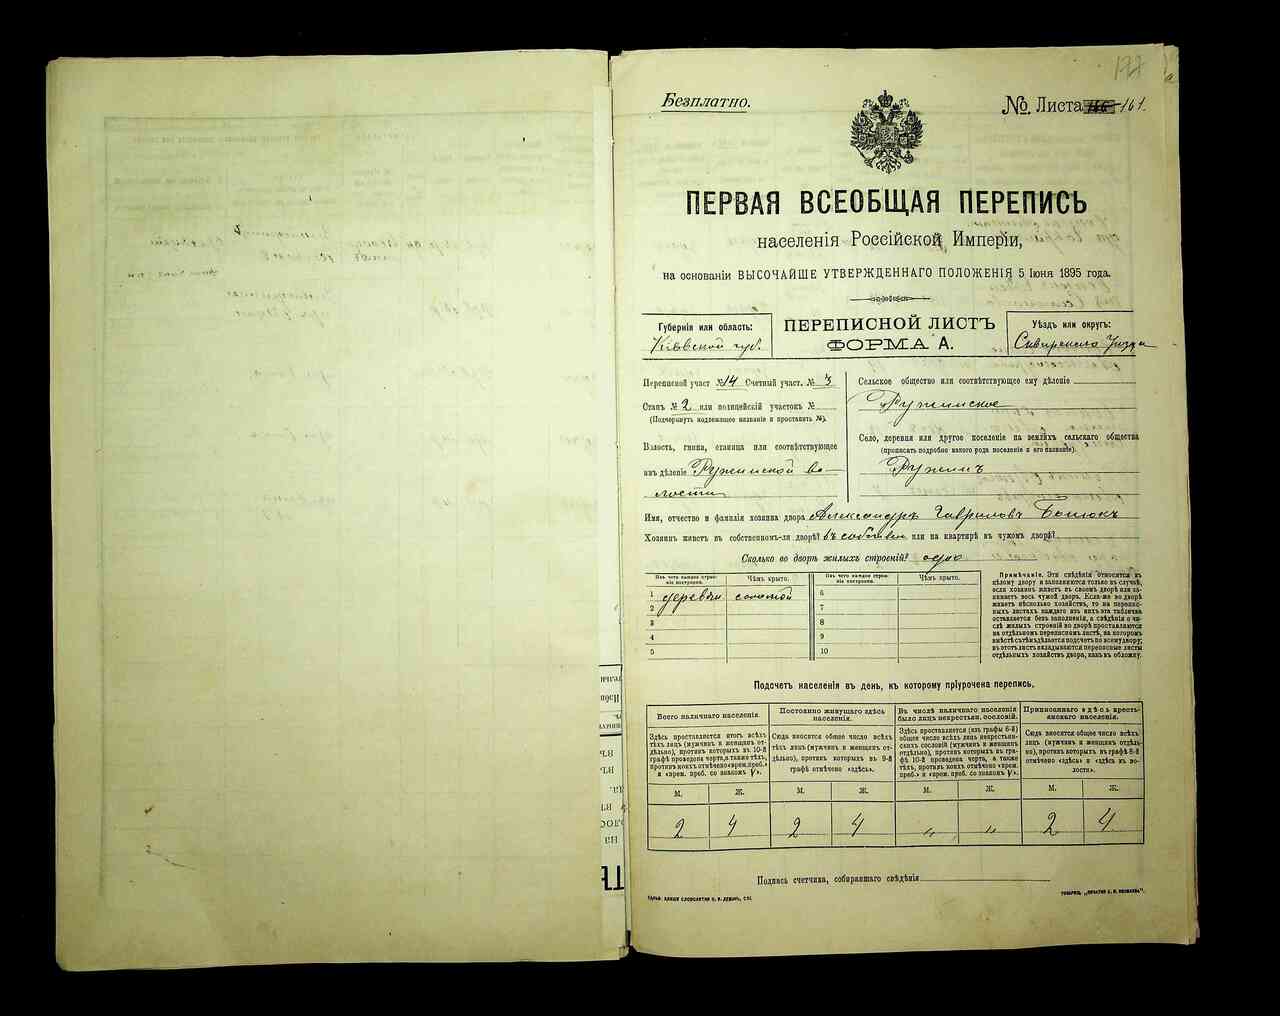 177
Безплатно.
№ Листа 161.
ПЕРВАЯ ВСЕОБЩАЯ ПЕРЕПИСЬ
населенія Россійской Имперіи,
на основаніи ВЫСОЧАЙШЕ УТВЕРЖДЕННАГО ПОЛОЖЕНІЯ 5 Іюня 1895 года.
Губернія или область:
Кіевской губ.
ПЕРЕПИСНОЙ ЛИСТЪ
ФОРМА А.
Уѣздъ или округъ:
Сквирскаго Уѣзда
Переписной участ №14 Счетный участ. № 3
Станъ № 2 или полицейскій участокъ №
(Подчеркнуть надлежащее названіе и проставить №).
Волость, гмина, станица или соотвѣтствующее
имъ дѣленіе Ружинской во-
лости
Сельское общество или соотвѣтствующее ему дѣленіе
Ружинское
Село, деревня или другое поселеніе на земляхъ сельскаго общества
(прописать подробно какого рода поселеніе и его названіе).
Ружинъ
Имя, отчество и фамилія хозяина двора Александръ Гавриловъ
Хозяинъ живетъ въ собственномъ-ли дворѣ? въ собствен или на квартирѣ въ чужомъ дворѣ?
Сколько во дворѣ жилыхъ строеній? одно
Изъ чего каждое строе-
ніе построено.
Чѣмъ крыто.
Изъ чего каждое строе-
ніе построено.
Чѣмъ крыто.
1 деревян соломой 6
2 7
3 8
4 9
5 10
Примѣчаніе. Эти свѣдѣнія относятся къ
цѣлому двору и заполняются только въ случаѣ,
если хозяинъ живетъ въ своемъ дворѣ или за-
нимаетъ весь чужой дворъ. Если-же во дворѣ
живетъ нѣсколько хозяйствъ, то на перепис-
ныхъ листахъ каждаго изъ нихъ эта табличка
оставляется безъ заполненія, а свѣдѣнія о чи-
слѣ жилыхъ строеній во дворѣ проставляются
на отдѣльномъ переписномъ листѣ, на которомъ
вмѣстѣ съ тѣмъ дѣлается подсчетъ по всему двору;
въ этотъ листъ вкладываются переписные листы
отдѣльныхъ хозяйствъ двора, какъ въ обложку.
Подсчетъ населенія въ день, къ которому пріурочена перепись.
Всего наличнаго населенія.
Здѣсь проставляется итогъ всѣхъ
тѣхъ лицъ (мужчинъ и женщинъ от-
дѣльно), противъ которыхъ въ 10-й
графѣ проведена черта, а также тѣхъ,
противъ коихъ отмѣчено «врем. преб.»
и «врем. преб. со знакомъ V».
Постоянно живущаго здѣсь
населенія.
Сюда вносится общее число всѣхъ
тѣхъ лицъ (мужчинъ и женщинъ от-
дѣльно), противъ которыхъ въ 9-й
графѣ отмѣчено «здѣсь».
Въ числѣ наличнаго населенія
было лицъ некрестьян. сословій.
Здѣсь проставляется (изъ графы 6-й)
общее число всѣхъ лицъ некрестьян-
скихъ сословій (мужчинъ и женщинъ
отдѣльно), противъ которыхъ въ гра-
фѣ 10-й проведена черта, а также
тѣхъ, противъ коихъ отмѣчено «врем.
преб.» и «врем. преб. со знакомъ V».
Приписаннаго здѣсь кресть-
янскаго населенія.
Сюда вносится общее число всѣхъ
лицъ (мужчинъ и женщинъ отдѣль-
но), противъ которыхъ въ графѣ 8-й
отмѣчено «здѣсь» и «здѣсь въ во-
лости».
М. Ж. М. Ж. М. Ж. М. Ж.
2 4 2 4 „ „ 2 4
Подпись счетчика, собиравшаго свѣдѣнія